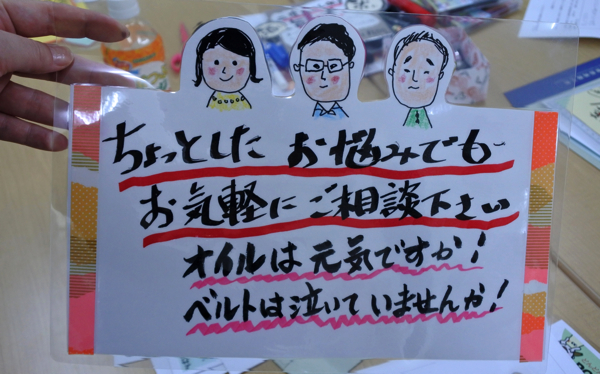 ちょっとした お悩みでも
お気軽にご相談下さい
オイルは元気ですか!
ベルトは泣いていませんか!